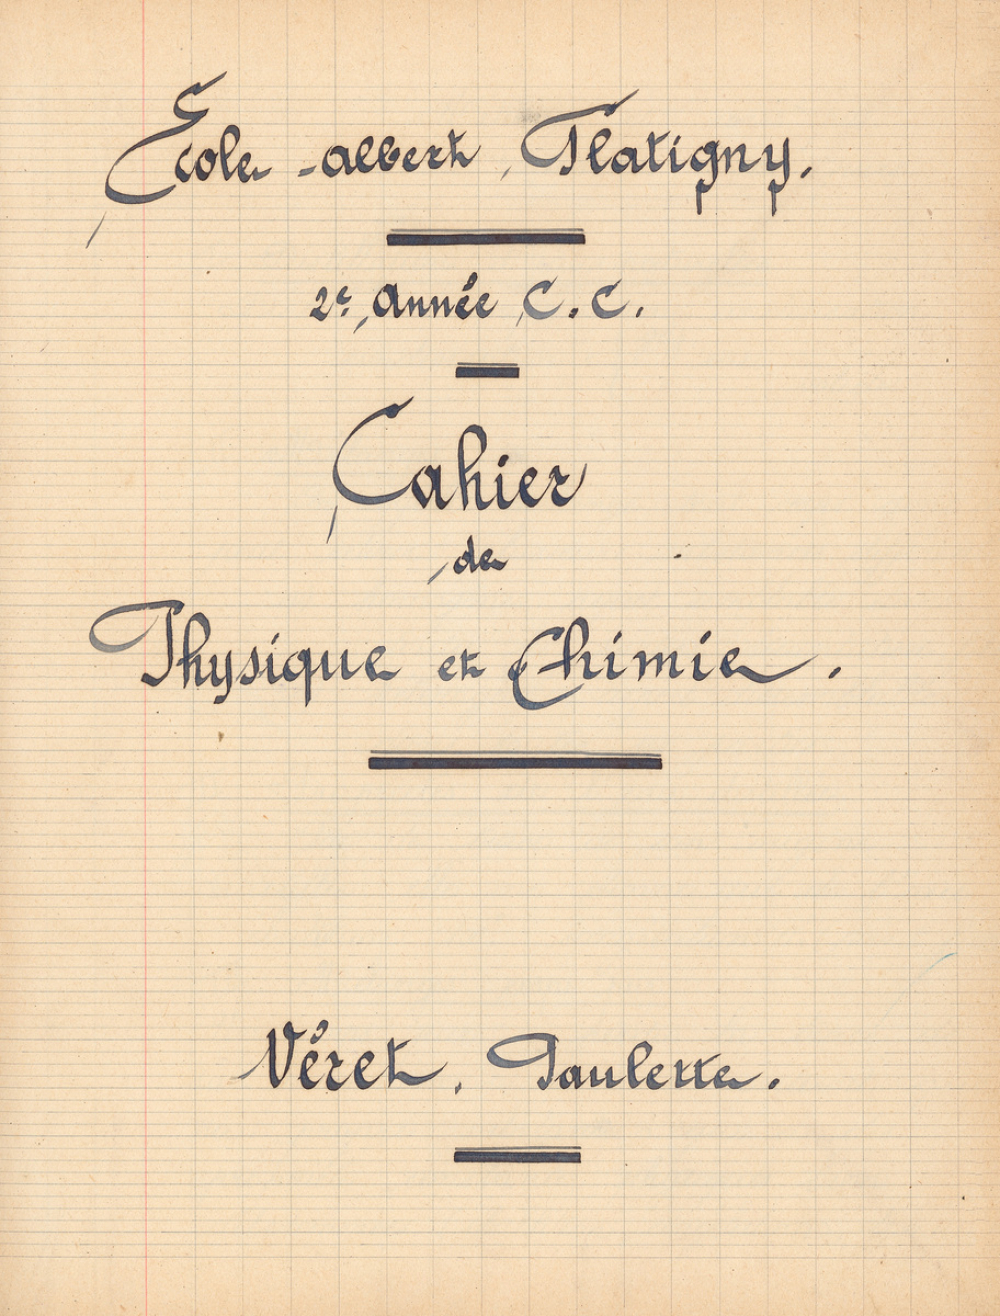 Ecole Albert Glatigny.
2e Année C.C.
Cahier
de
Physique et Chimie.
Véret, Paulette.